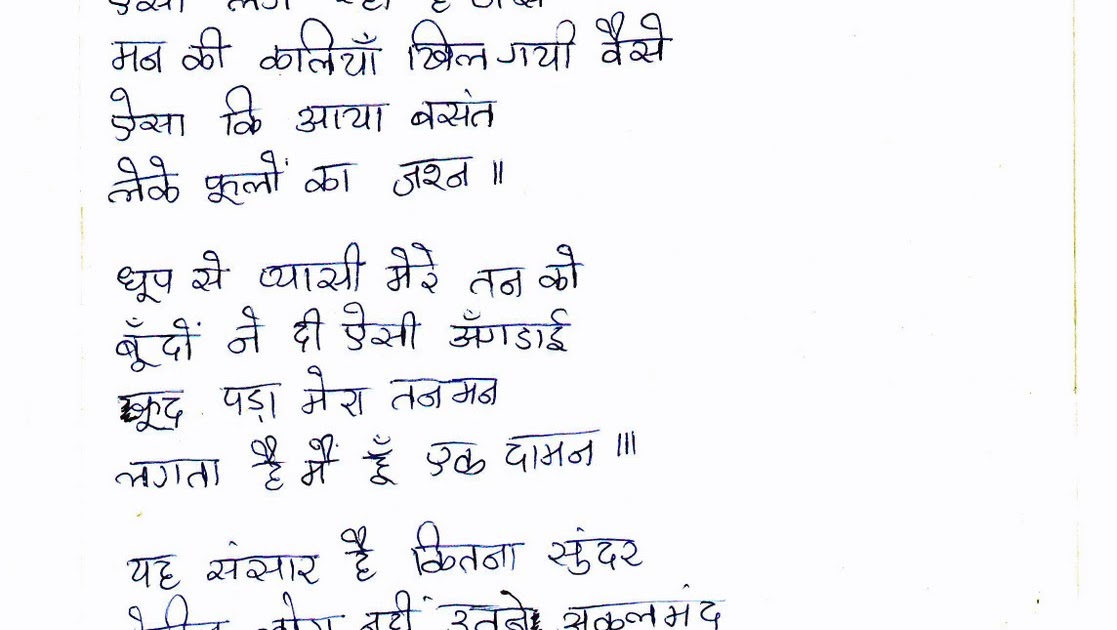 मन की कलियाँ खिल गयी वैसे
ऐसा कि आया बसंत
लेके फूलों का जश्न ॥
धूप से प्यासी मेरे तन को
बूँदों ने दी ऐसी अँगडाई
कूद पड़ा मेरा तनमन
लगता है मैं हूँ एक दामन |||
यह संसार है कितना सुंदर
लोग नहीं उतने अकलमंद